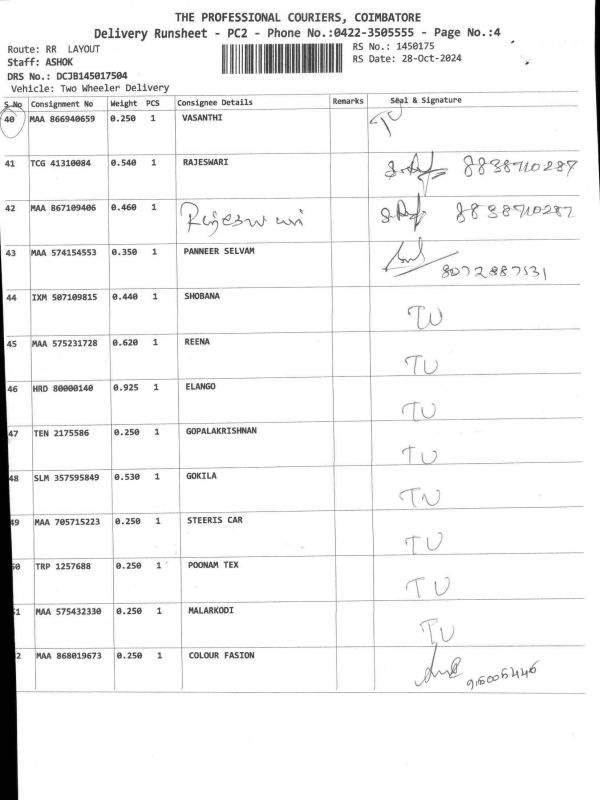 THE PROFESSIONAL COURIERS, COIMBATORE
Delivery Runsheet - PC2 - Phone No.:0422-3505555 - Page No.:4
Route: RR LAYOUT
RS No.: 1450175
Staff: ASHOK
RS Date: 28-Oct-2024
DRS No.: DCJB145017504
Vehicle: Two Wheeler Delivery
S No Consignment No Weight PCS Consignee Details Remarks Seal & Signature
40 MAA 866940659 0.250 1 VASANTHI TU
41 TCG 41310084 0.540 1 RAJESWARI 8838710287
42 MAA 867109406 0.460 1 Rajeswari 8838710287
43 MAA 574154553 0.350 1 PANNEER SELVAM
8072887531
44 IXM 507109815 0.440 1 SHOBANA TU
45 MAA 575231728 0.620 1 REENA TU
46 HRD 80000140 0.925 1 ELANGO TU
47 TEN 2175586 0.250 1 GOPALAKRISHNAN TU
48 SLM 357595849 0.530 1 GOKILA TU
49 MAA 705715223 0.250 1 STEERIS CAR TU
50 TRP 1257688 0.250 1 POONAM TEX TU
51 MAA 575432330 0.250 1 MALARKODI TU
2 MAA 868019673 0.250 1 COLOUR FASION